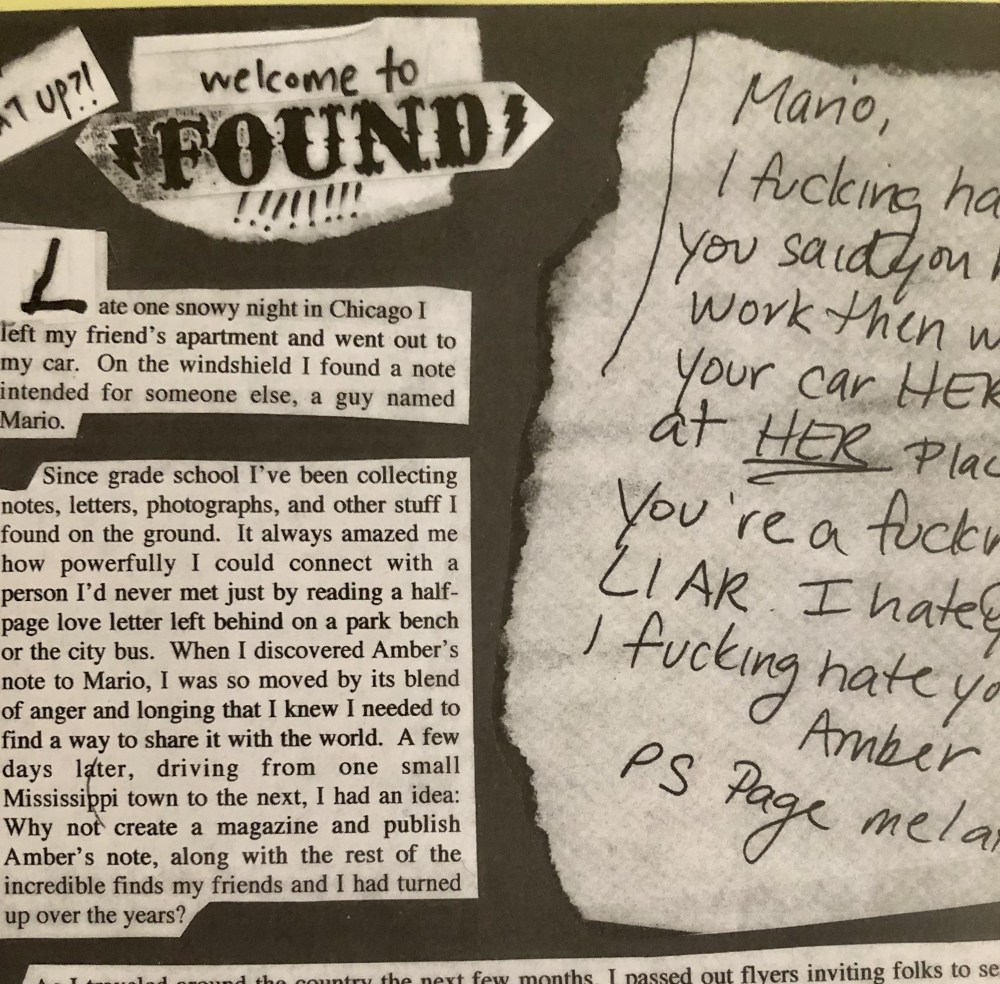 UP?!
welcome to
FOUND
!!!!!!!!
Late one snowy night in Chicago I
left my friend's apartment and went out to
my car. On the windshield I found a note
intended for someone else, a guy named
Mario.
Since grade school I've been collecting
notes, letters, photographs, and other stuff I
found on the ground. It always amazed me
how powerfully I could connect with a
person I'd never met just by reading a half-
page love letter left behind on a park bench
or the city bus. When I discovered Amber's
note to Mario, I was so moved by its blend
of anger and longing that I knew I needed to
find a way to share it with the world. A few
days later, driving from one small
Mississippi town to the next, I had an idea:
Why not create a magazine and publish
Amber's note, along with the rest of the
incredible finds my friends and I had turned
up over the years?
Mario,
I fucking ha
you said you
work then w
your car HER
at HER Plac
You're a fuckn
LIAR. I hate
I fucking hate yo
Amber
PS Page me la
As I traveled around the country the next few months, I passed out flyers inviting folks to se